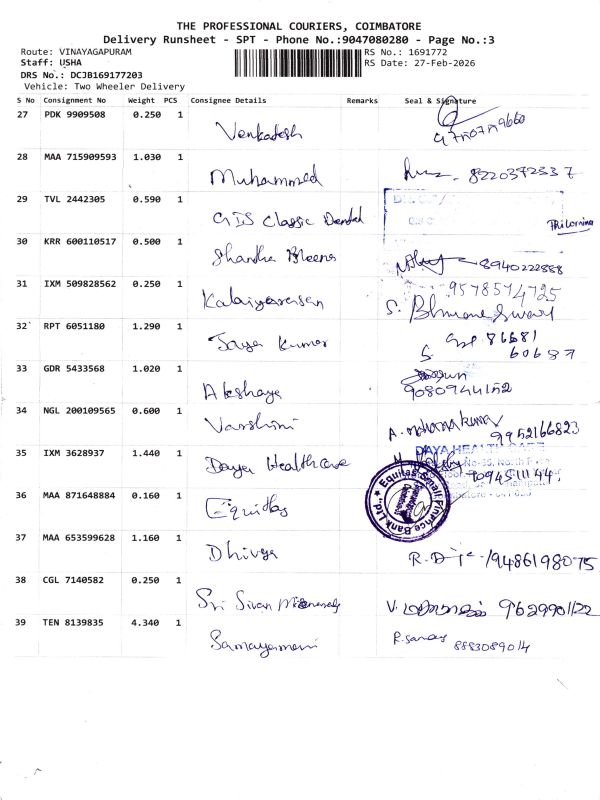 THE PROFESSIONAL COURIERS, COIMBATORE
Delivery Runsheet - SPT - Phone No.:9047080280 - Page No.:3
Route: VINAYAGAPURAM RS No.: 1691772
Staff: USHA RS Date: 27-Feb-2026
DRS No.: DCJB169177203
Vehicle: Two Wheeler Delivery
S No Consignment No Weight PCS Consignee Details Remarks Seal & Signature
27 PDK 9909508 0.250 1
Venkatesh
28 MAA 715909593 1.030 1
Muhammed 8220372537
29 TVL 2442305 0.590 1
GIS Classic Dental
30 KRR 600110517 0.500 1
Shantha 8940222888
31 IXM 509828562 0.250 1 9578574725
Kalaiyarasan S.
32 RPT 6051180 1.290 1 86681
Jaya Kumar S 60687
33 GDR 5433568 1.020 1
Akshaya 9080944152
34 NGL 200109565 0.600 1
Varshini A. 9952166823
35 IXM 3628937 1.440 1 DAYA HEALTH CARE
Daya Healthcare 7094511144
36 MAA 871648884 0.160 1 Equitas Small Finance Bank Ltd.,
Equitas
37 MAA 653599628 1.160 1
Dhivya R. 9486198075
38 CGL 7140582 0.250 1
Sri Sivan V. 9629901122
39 TEN 8139835 4.340 1
Samayameni R. 8883089014